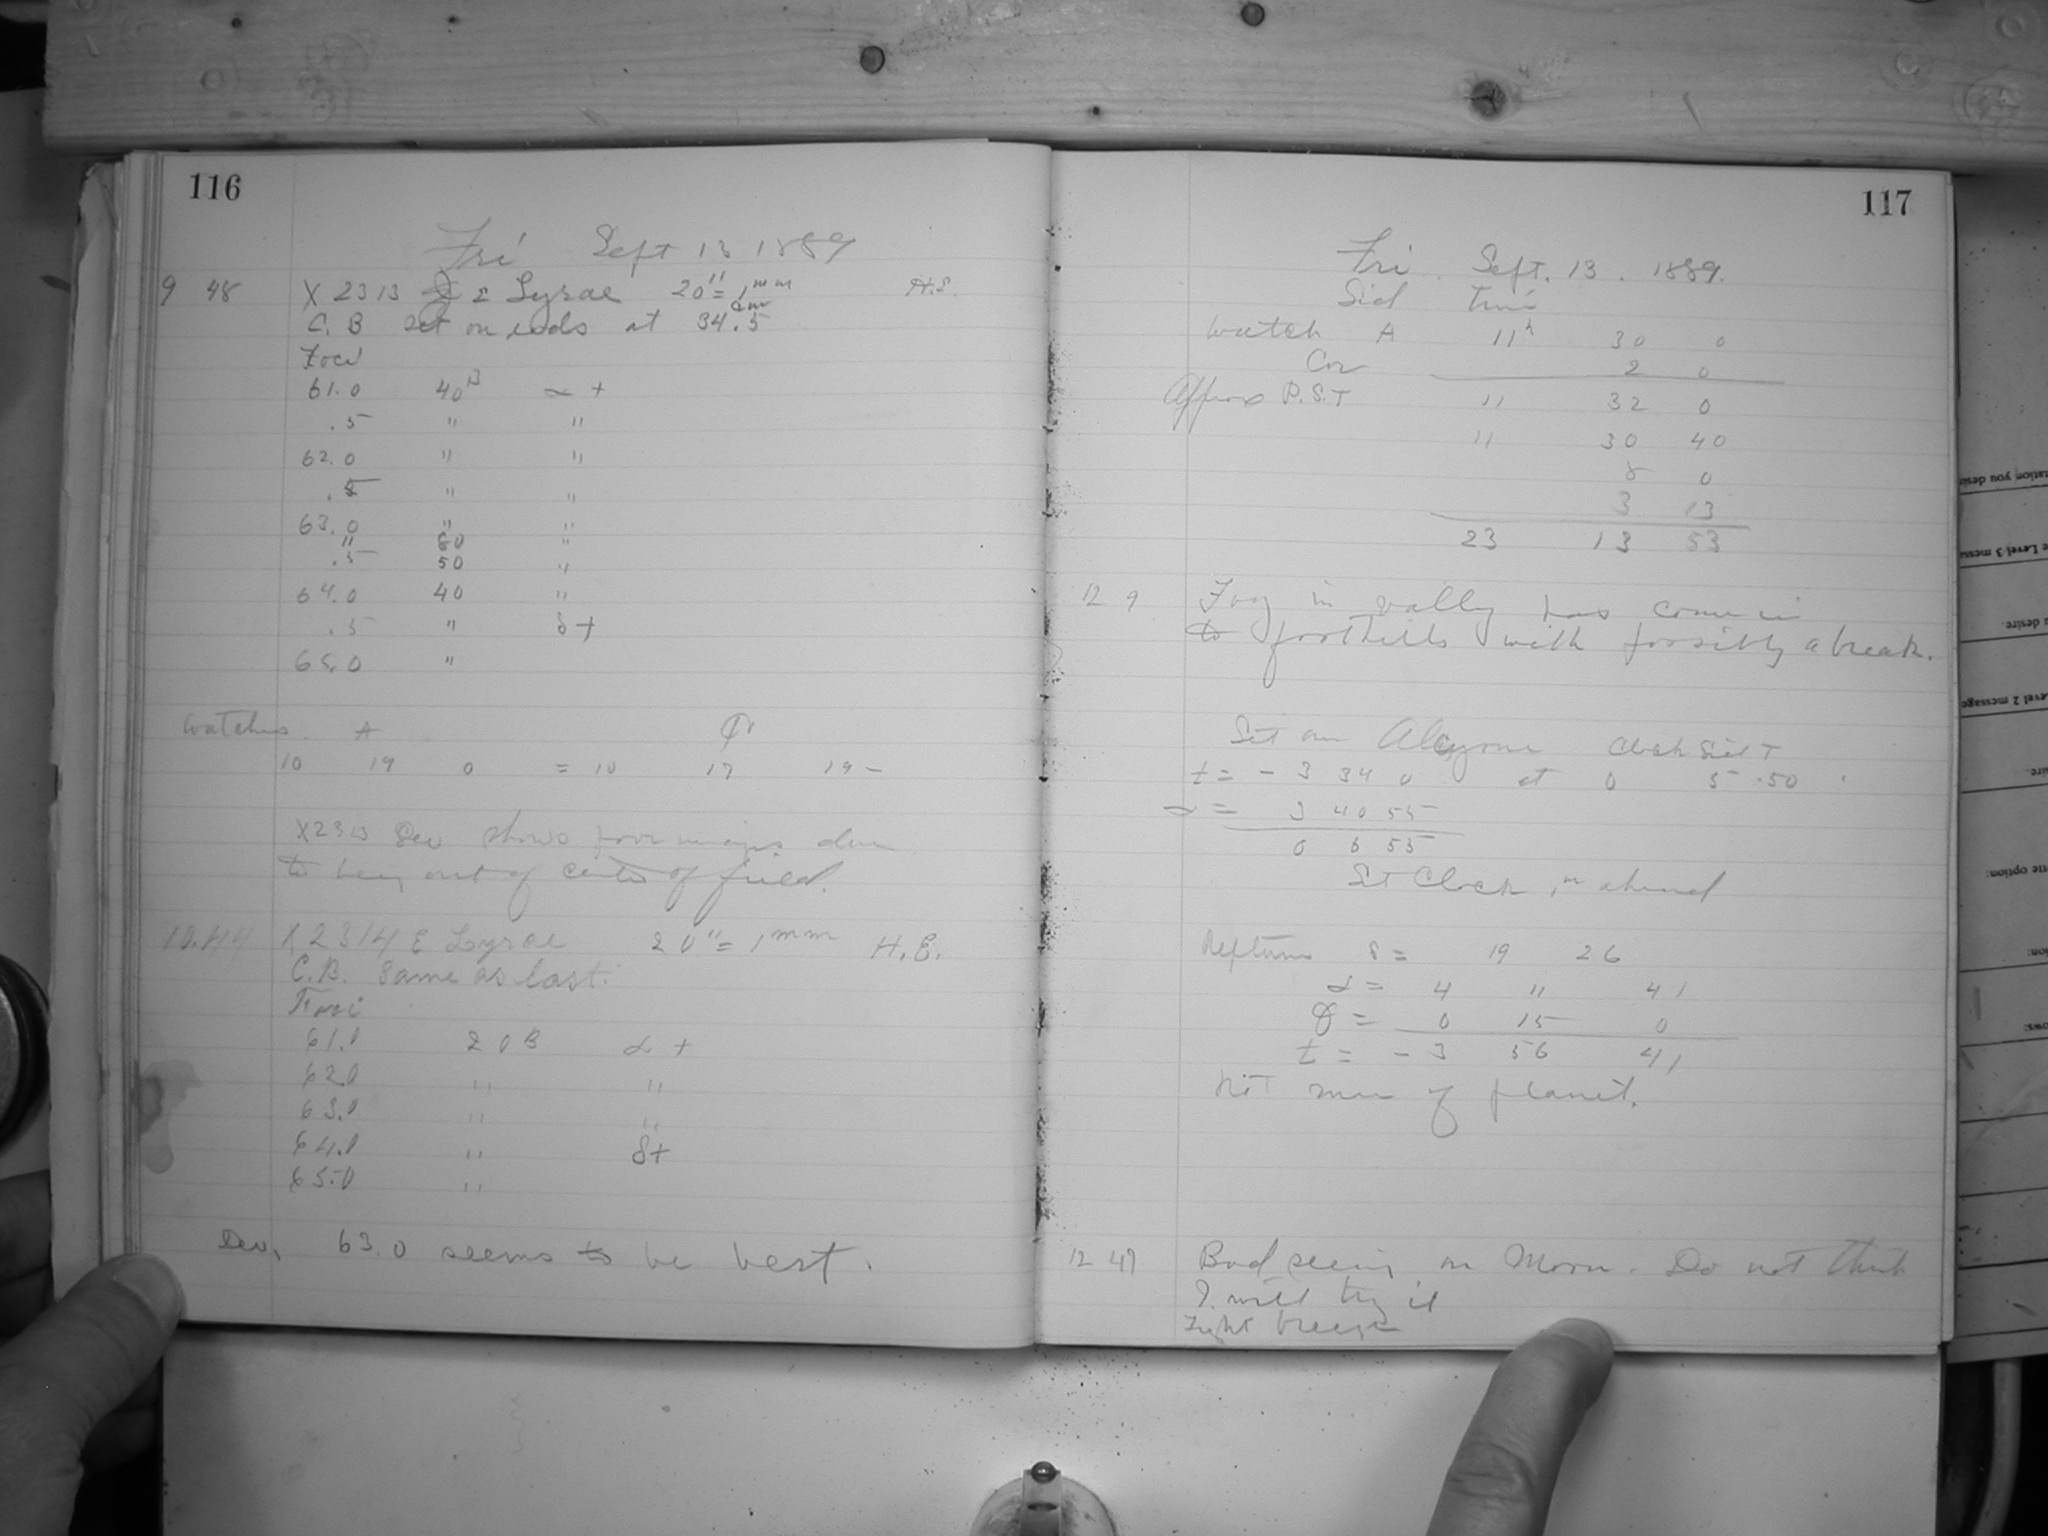 116
Fri Sept 13 1889
9 48 X 2313 Σ Lyrae 20"=1mm H.E.
C. B set on ends at 34.5
Foci
61.0 40B α +
.5 " "
62.0 " "
.5 " "
63.0 " "
" 60 "
.5 50 "
64.0 40 "
.5 " δ +
65.0 "
Watches A
10 19 0 = 10 17 19 -
X2313 Dev shows poor images due
to being out of center of field.
10.44 X 2314 ε Lyrae 20"=1mm H.E.
C.B. Same as last.
Foci
61.0 20B α +
62.0 " "
63.0 " "
64.0 " δ+
65.0 "
Dev. 63.0 seems to be best.
117
Fri. Sept. 13. 1889.
Sid time
Watch A 11h 30 0
Cor 2 0
Approx P.S.T 11 32 0
11 30 40
8 0
3 13
23 13 53
12 9 Fog in vally has come in
to foothills with possibly a break.
Set on Alcyone Clock Sid T
t = - 3 34 0 at 0 5.50
α = 3 40 55
0 6 55
Set Clock 1m ahead
Neptune δ = 19 26
α = 4 11 41
= 0 15 0
t = - 3 56 41
Not sure of planet.
12 47 Bad seeing on Moon. Do not think
I will try it
Light breeze